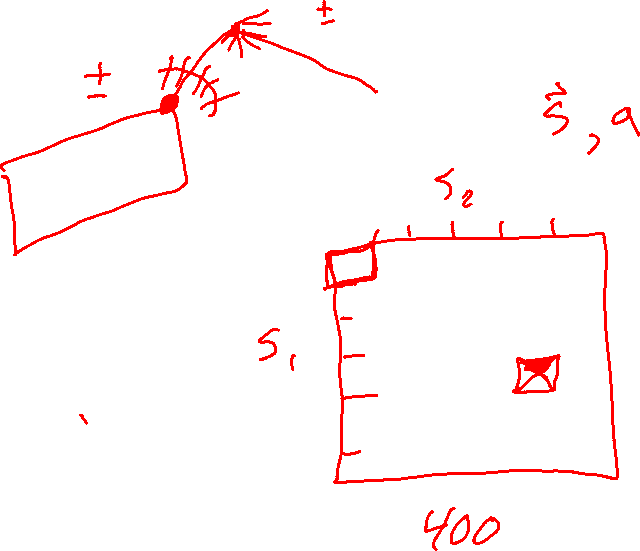 ±
±
s⃗, a
S₂
S₁
400